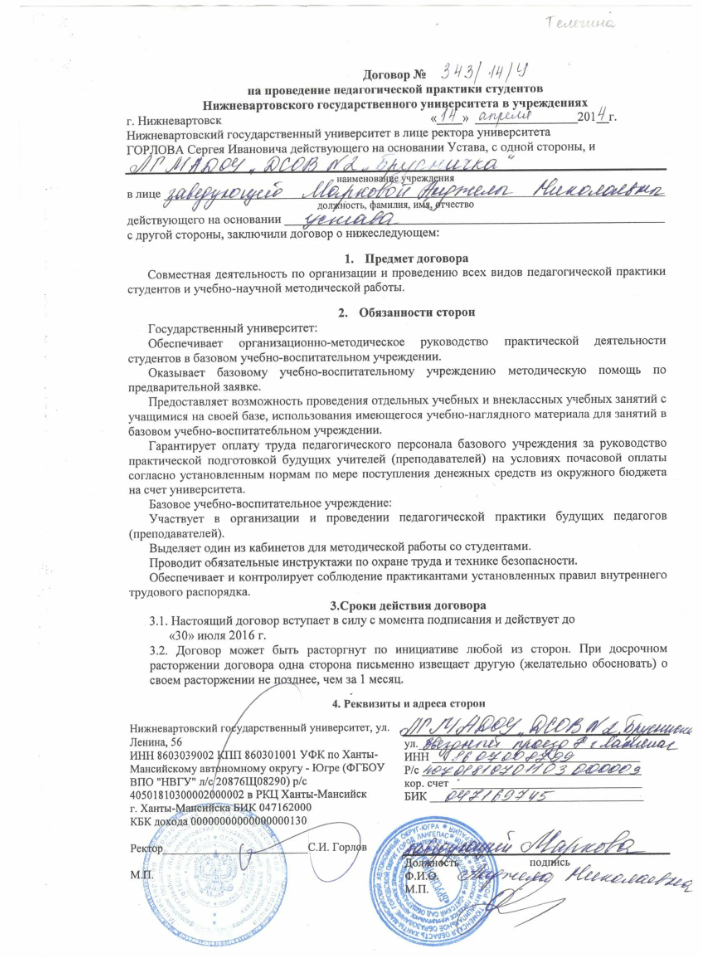 Телегина
Договор № 343/14/У
на проведение педагогической практики студентов
Нижневартовского государственного университета в учреждениях
г. Нижневартовск «14» апреля 2014 г.
Нижневартовский государственный университет в лице ректора университета
ГОРЛОВА Сергея Ивановича действующего на основании Устава, с одной стороны, и
ЛГ МАДОУ „ДСОВ №2 „Брусничка"
наименование учреждения
в лице заведующей Марковой Николаевна
должность, фамилия, имя, отчество
действующего на основании устава
с другой стороны, заключили договор о нижеследующем:
1. Предмет договора
Совместная деятельность по организации и проведению всех видов педагогической практики
студентов и учебно-научной методической работы.
2. Обязанности сторон
Государственный университет:
Обеспечивает организационно-методическое руководство практической деятельности
студентов в базовом учебно-воспитательном учреждении.
Оказывает базовому учебно-воспитательному учреждению методическую помощь по
предварительной заявке.
Предоставляет возможность проведения отдельных учебных и внеклассных учебных занятий с
учащимися на своей базе, использования имеющегося учебно-наглядного материала для занятий в
базовом учебно-воспитатебльном учреждении.
Гарантирует оплату труда педагогического персонала базового учреждения за руководство
практической подготовкой будущих учителей (преподавателей) на условиях почасовой оплаты
согласно установленным нормам по мере поступления денежных средств из окружного бюджета
на счет университета.
Базовое учебно-воспитательное учреждение:
Участвует в организации и проведении педагогической практики будущих педагогов
(преподавателей).
Выделяет один из кабинетов для методической работы со студентами.
Проводит обязательные инструктажи по охране труда и технике безопасности.
Обеспечивает и контролирует соблюдение практикантами установленных правил внутреннего
трудового распорядка.
3.Сроки действия договора
3.1. Настоящий договор вступает в силу с момента подписания и действует до
«30» июля 2016 г.
3.2. Договор может быть расторгнут по инициативе любой из сторон. При досрочном
расторжении договора одна сторона письменно извещает другую (желательно обосновать) о
своем расторжении не позднее, чем за 1 месяц.
4. Реквизиты и адреса сторон
Нижневартовский государственный университет, ул.
Ленина, 56
ИНН 8603039002 КПП 860301001 УФК по Ханты-
Мансийскому автономному округу - Югре (ФГБОУ
ВПО "НВГУ" л/с 20876Щ08290) р/с
40501810300002000002 в РКЦ Ханты-Мансийск
г. Ханты-Мансийска БИК 047162000
КБК дохода 00000000000000000130
Ректор С.И. Горлов
М.П.
ЛГ МАДОУ „ДСОВ №2 „Брусничка
ул. Звездный проезд г. Лангепас
ИНН 8607008799
Р/с
кор. счет
БИК 047169745
заведующий Маркова
Должность подпись
Ф.И.О. Николаевна
М.П.